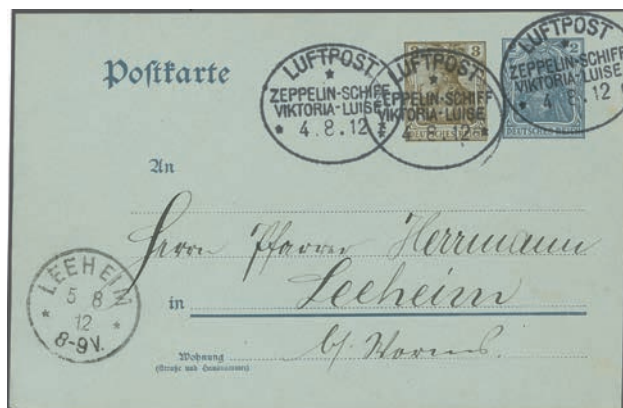 LUFTPOST
ZEPPELIN-SCHIFF
VIKTORIA-LUISE
* 4.8.12 *
LUFTPOST
ZEPPELIN-SCHIFF
VIKTORIA-LUISE
* 4.8.12 *
LUFTPOST
ZEPPELIN-SCHIFF
VIKTORIA-LUISE
* 4.8.12 *
3 3
2
DEUTSCHES REICH
DEUTSCHES REICH
Postkarte
An
Herrn Pfarrer Herrmann
in Leeheim
b/ Worms.
Wohnung
(Straße und Hausnummer)
LEEHEIM
5 8
* 12 *
8-9V.